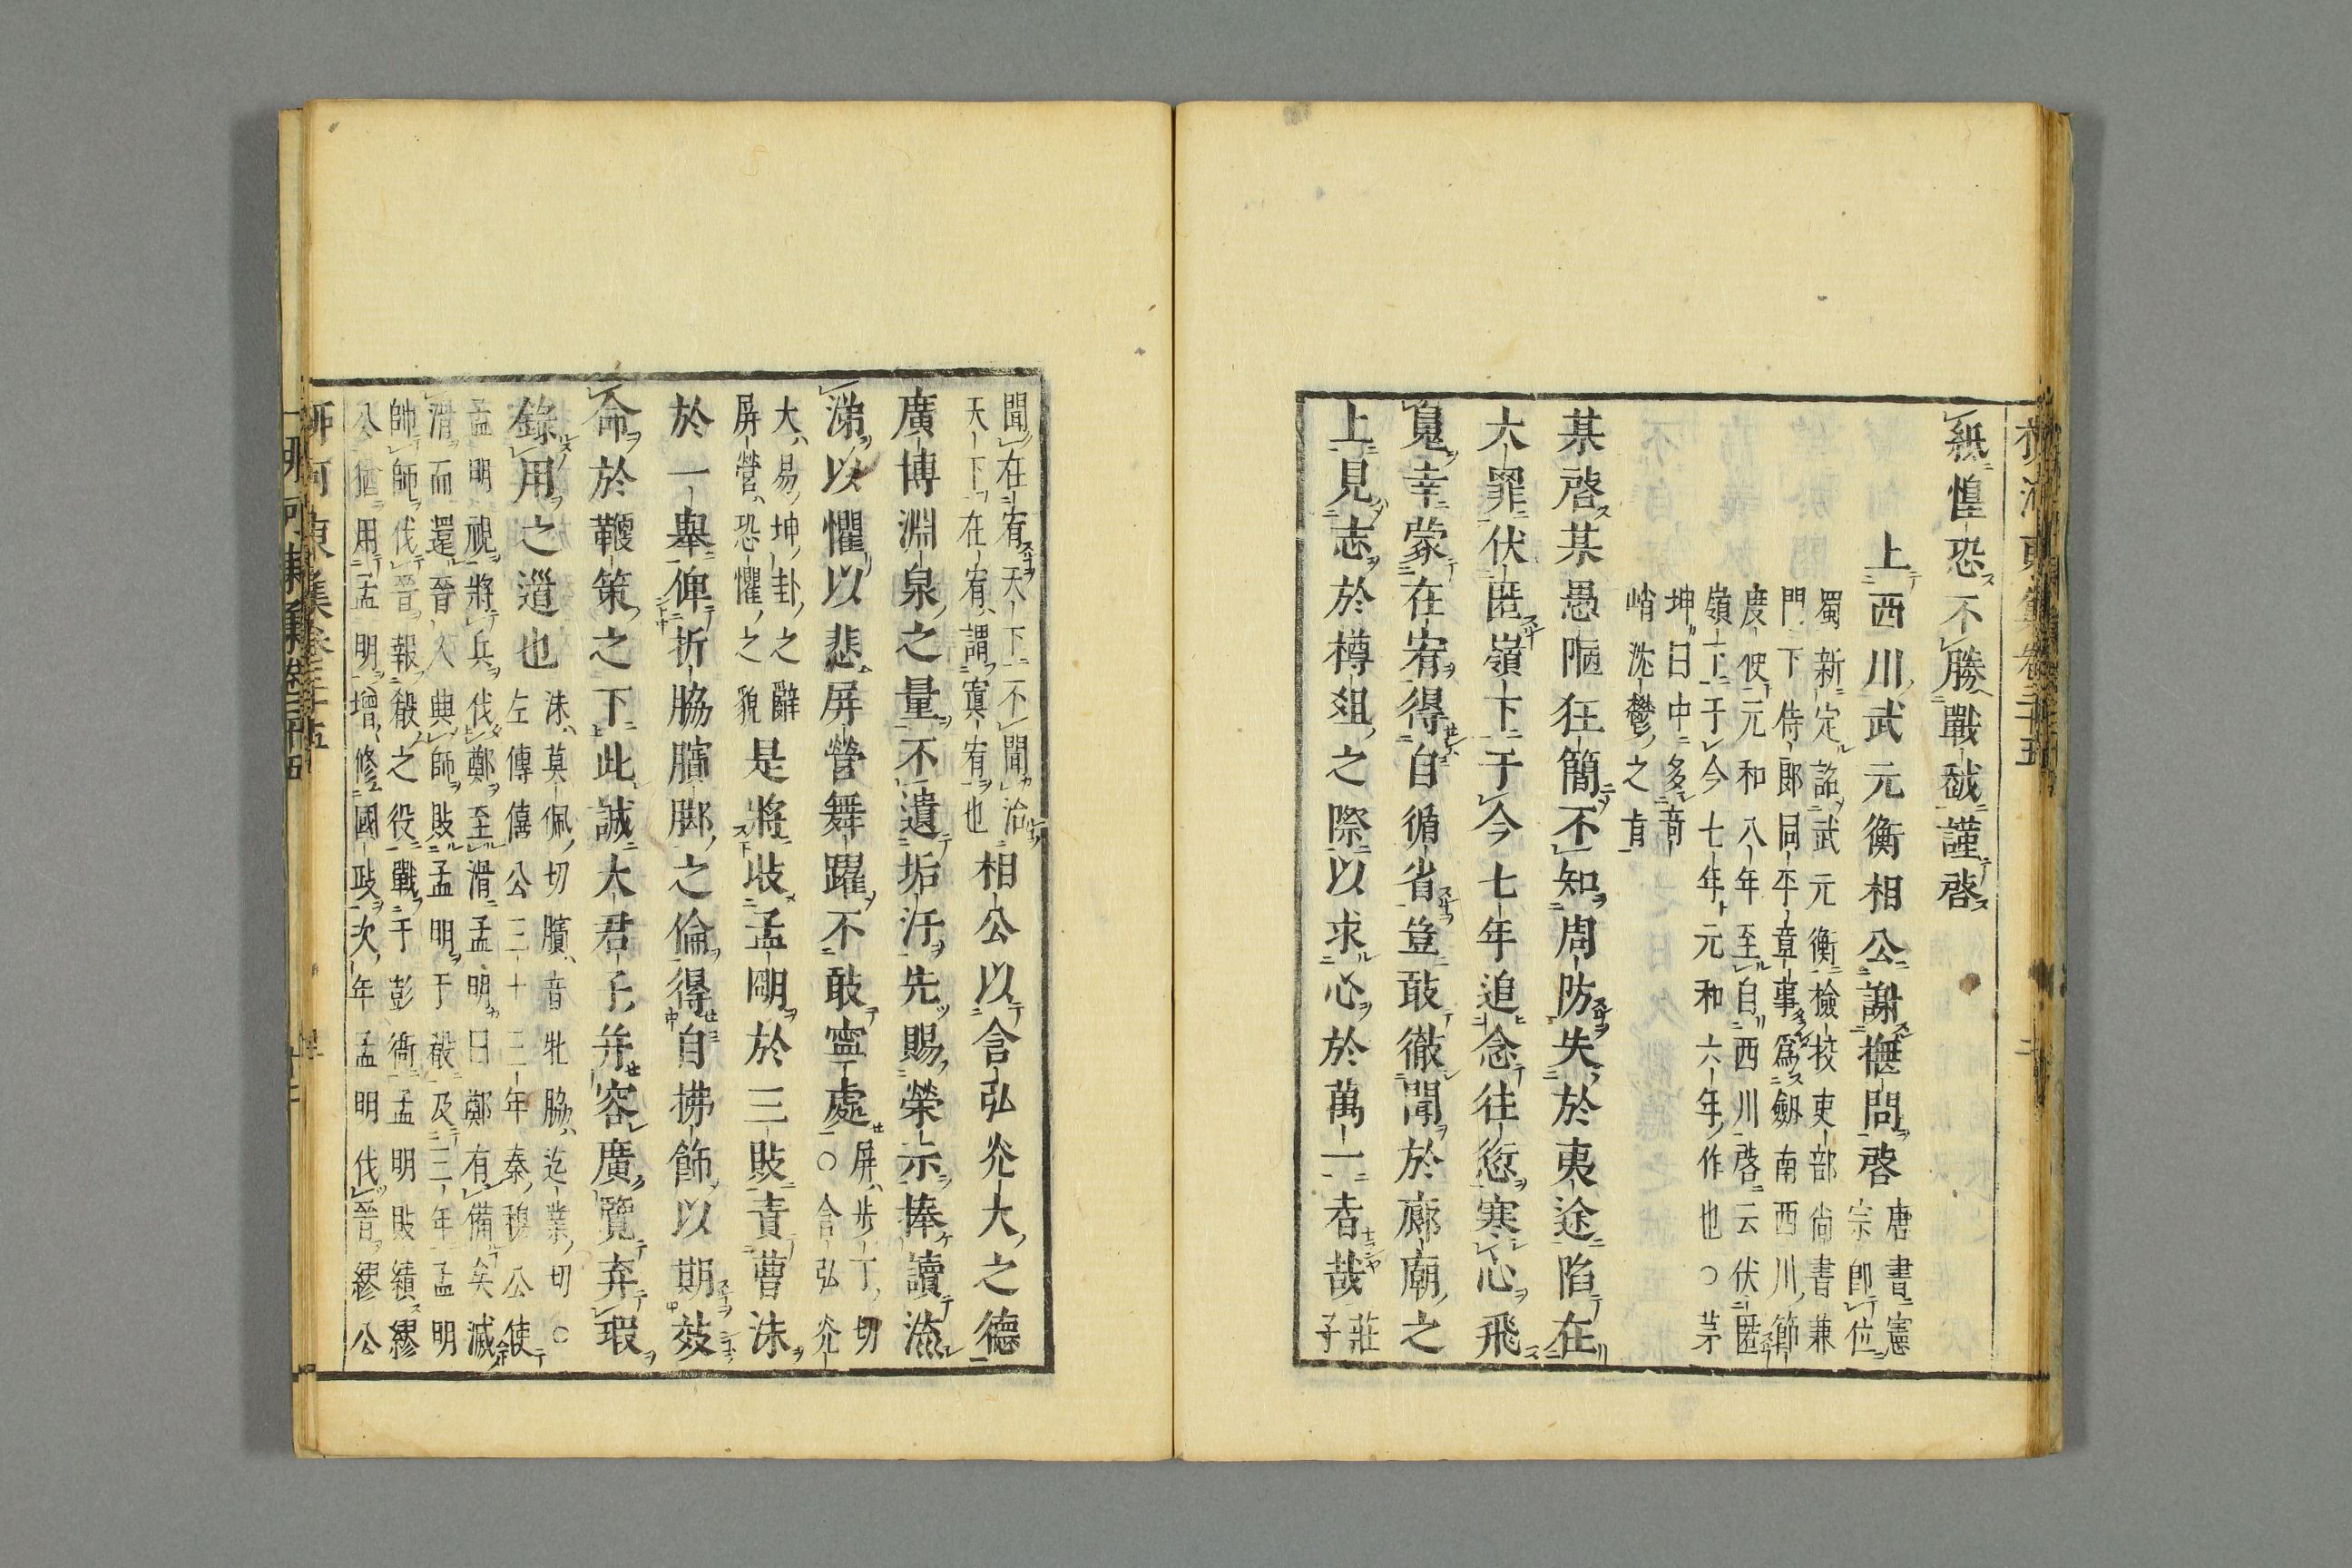 紙惶恐不勝戰越謹啓
上西川武元衡相公謝撫問啓
唐書憲
宗卽位
蜀新定詔武元衡檢挍吏部尚書兼
門下侍郎同平章事爲劔南西川節
度使元和八年至自西川啓云伏匿
嶺下于今七年元和六年作也○茅
坤曰中多奇
峭沈鬱之旨
某啓某愚陋狂簡不知周防失於夷途陷在
大罪伏匿嶺下于今七年追念往愆寒心飛
䰟幸蒙在宥得自循省豈敢徹聞於廊廟之
上見志於樽爼之際以求心於萬一者哉
莊
子
聞在宥天下不聞治
天下在宥謂寞宥也
相公以含弘光大之德
廣博淵泉之量不遺垢汙先賜榮示捧讀流
涕以懼以悲屏營舞躍不敢寧處
屏步丁切
○含弘光
大易坤卦之辭
屏營恐懼之貌
是將收孟明於三敗責曹沬
於一舉俾折脇臏脚之倫得自拂飾以期效
命於鞭策之下此誠大君子并容廣覽弃瑕
錄用之道也
沬莫佩切臏音牝脇迄業切○
左傳僖公三十三年秦穆公使
孟明視將兵伐鄭至滑孟明曰鄭有備矣滅
滑而還晉人典師敗孟明于殽及三年孟明
帥師伐晉報殽之役戰于彭衙孟明敗績繆
公猶用孟明增修國政次年孟明伐晉繆公
柳河東集卷三十五